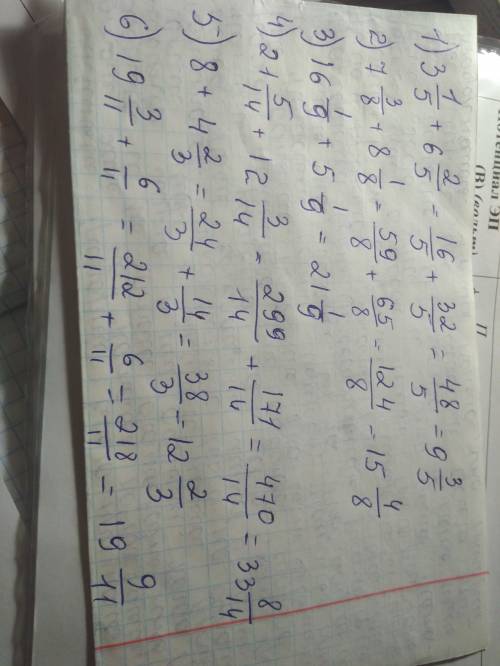 ЭП
(В)
1) 3 1/5 + 6 2/5 = 16/5 + 32/5 = 48/5 = 9 3/5
2) 7 3/8 + 8 1/8 = 59/8 + 65/8 = 124/8 = 15 4/8
3) 16 1/9 + 5 1/9 = 21 1/9
4) 21 5/14 + 12 3/14 = 299/14 + 171/14 = 470/14 = 33 8/14
5) 8 + 4 2/3 = 24/3 + 14/3 = 38/3 = 12 2/3
6) 19 3/11 + 6/11 = 212/11 + 6/11 = 218/11 = 19 9/11